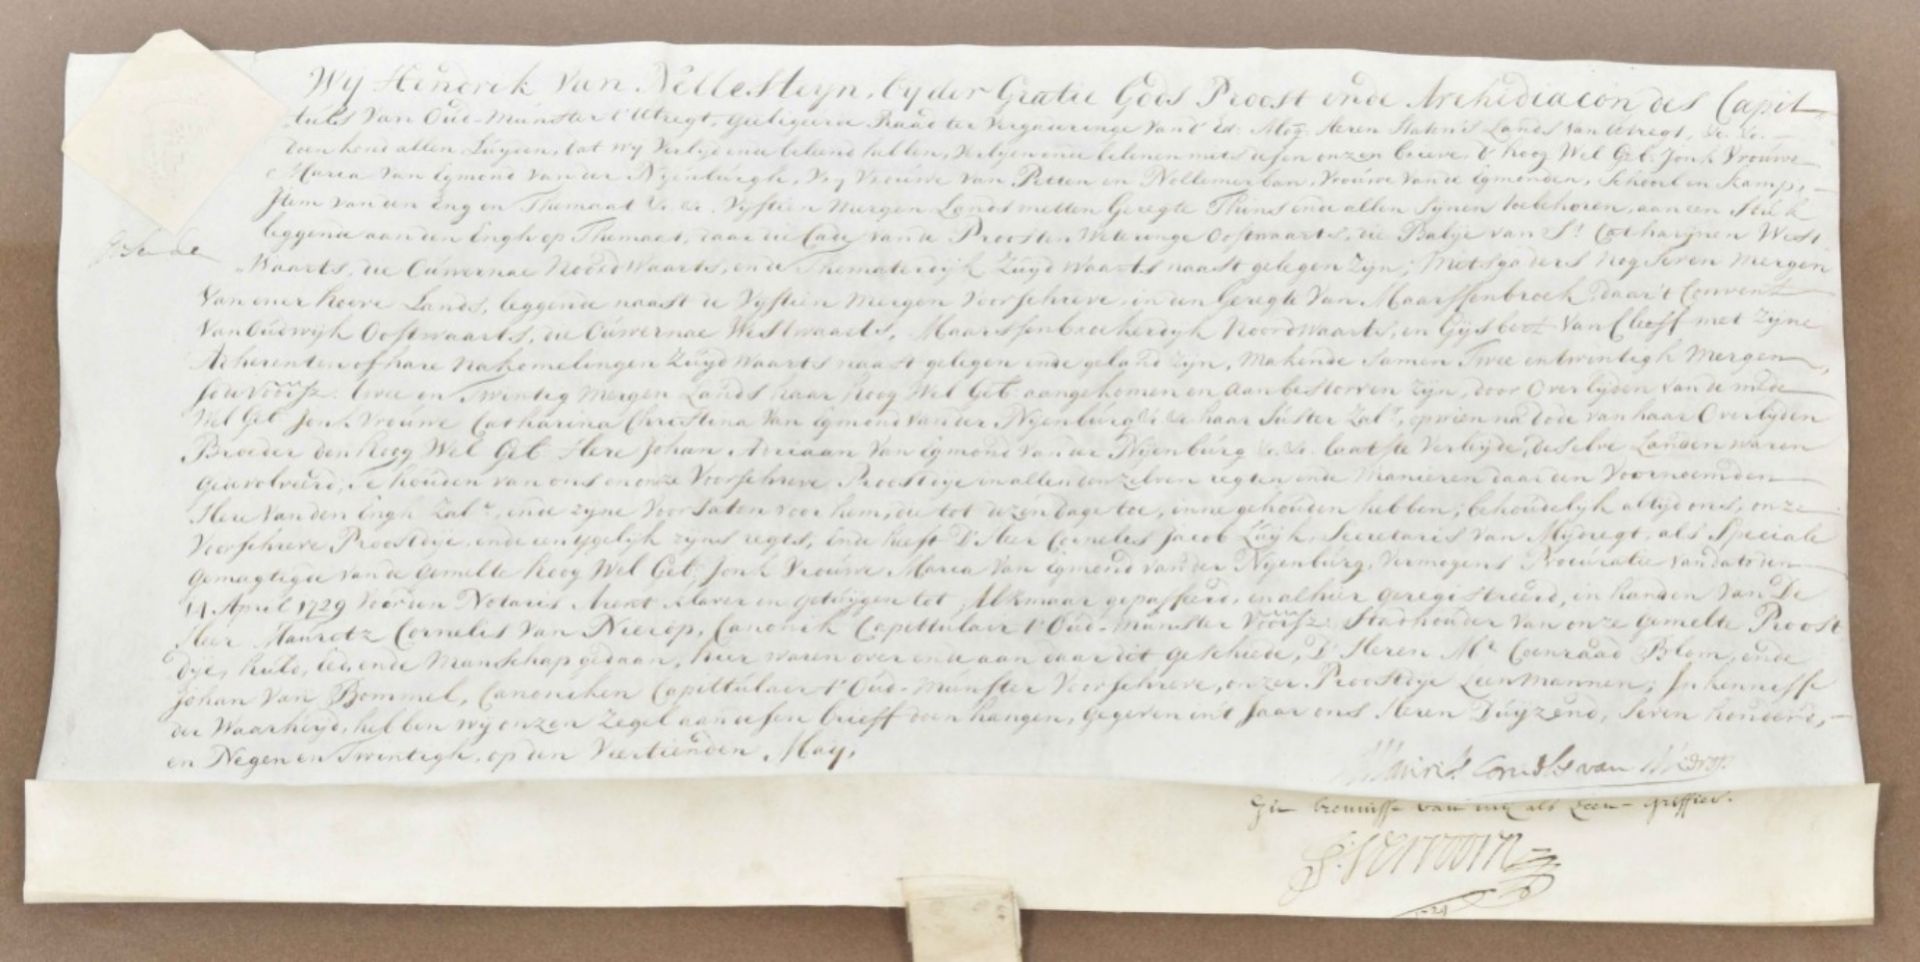 Wy Hendrik Van Nellesteyn, by der Gratie Gods Proost ende Archidiacon des Capit-
tuls Van Oud-Munster t'Utregt, Geeligeerde Raad ter Vergaderinge Van d'Ed: Mog: Heren Staten's Lands Van Utregt, &c. &c. –
doen kond allen Luyden, dat wy Verlyd ende beleend hebben, Verlyen ende belenen mits desen onzen brieve, d'hoog Wel Geb. Jonk Vrouwe
Maria Van Egmond Van der Nyenburgh, Vry Vrouwe Van Petten en Nollemerban, Vrouwe Van de Egmonden, Schoorl en Kamp, –
Item van den Eng en Themaat &c. &c. Vyftien Mergen Lands metten Geregte Thins ende allen synen toebehoren, aan een Stuk
leggende aan den Engh op Themaat, daar die Cade van de Proosten Weteringe Oostwaarts, die Balije van St. Catharynen West
Waarts, die Cuwernae Noordwaarts, ende Thematerdyk Zuyd waarts naast gelegen zyn; Mitsgaders nog Seven Mergen
Van ener hoeve Lands, leggende naast de Vyftien Mergen Voorschreve, in den Geregte Van Maarssenbroek, daar't Convent
Van Oudwijk Oostwaarts, die Cuwernae Westwaarts, Maarssenbroekerdyk Noordwaarts, en Gysbert Van Cleeff met zyne
Adherenten of hare Nakomelingen Zuyd waarts naast gelegen ende geland zyn, Makende samen Twee en twentigh Mergen
twee en Twentig Mergen Lands haar Hoog Wel Geb. aangekomen en aanbestorven zyn, door Overlyden van de mede
Wel Geb. Jonk Vrouwe Catharina Christina Van Egmond van der Nyenburg &c. &c. haar Suster Zalr., op wien na dode van haar Overlyden
Broeder den hoog Wel Geb. Here Johan Adriaan Van Egmond van der Nyenburg &c. &c. laatste Verleyde, deselve Landen waren
gedevolveerd; Te houden van ons en onze Voorschreve Proostdye in allen denzelven regten ende Manieren daar den Voornoemden
Here Van den Engh Zalr., ende zyne Voorsaten voor hem, die tot dezen dage toe, inne gehouden hebben; behoudelyk altyd ons, onze
Voorschreve Proostdye, ende een ygelyk zyns regts, Ende heeft D'Heer Cornelis Jacob Luyk, Secretaris van Mydregt, als Speciale
Gemagtigde van de Gemelte hoog Wel Geb. Jonk Vrouwe Maria Van Egmond van der Nyenburg, Vermogens Procuratie van dato den
14 April 1729 Voor den Notaris Arent Klaver en getuygen tot Alkmaar gepasseerd, en alhier geregistreerd, in handen van De
Heer Mauretz Cornelis Van Nierop, Canonik Capittulaer t'Oud-Munster Stadhouder van onze gemelte Proost
dye, hulde, eed, ende Manschap gedaan, hier waren over ende aan daar dit geschiede, D'Heren Mr. Coenraad Blom, ende
Johan Van Bommel, Canoniken Capittulaer t'Oud-Munster Voorschreve, onzer Proostdye Leenmannen; In kennisse
der Waarheyd, hebben wy onzen Zegel aan desen brieff doen hangen, Gegeven in't Jaar ons Heren Duyzend, Seven honderd, –
en Negen en Twentigh, op den Veertienden May.
Maurets Cornelis van Nierop
Ter kennisse van my als Leen-griffier.